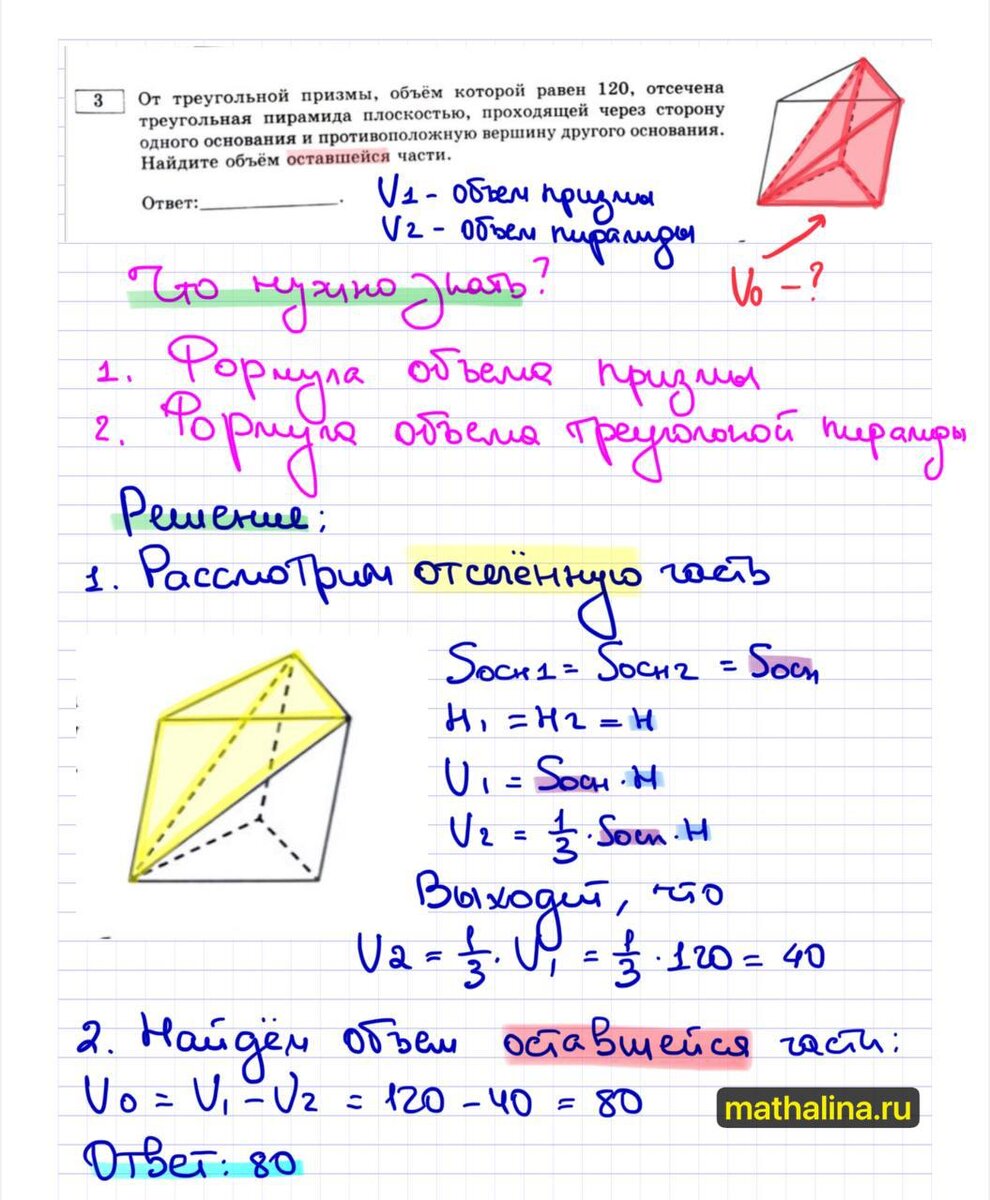 3
От треугольной призмы, объём которой равен 120, отсечена
треугольная пирамида плоскостью, проходящей через сторону
одного основания и противоположную вершину другого основания.
Найдите объём оставшейся части.
Ответ:
V1 - объем призмы
V2 - объем пирамиды
V0 - ?
Что нужно знать?
1. Формула объема призмы
2. Формула объема треугольной пирамиды
Решение:
1. Рассмотрим отсечённую часть
Sосн1 = Sосн2 = Sосн
H1 = H2 = H
V1 = Sосн · H
V2 = 1/3 · Sосн · H
Выходит, что
V2 = 1/3 · V1 = 1/3 · 120 = 40
2. Найдём объем оставшейся части:
V0 = V1 - V2 = 120 - 40 = 80
mathalina.ru
Ответ: 80